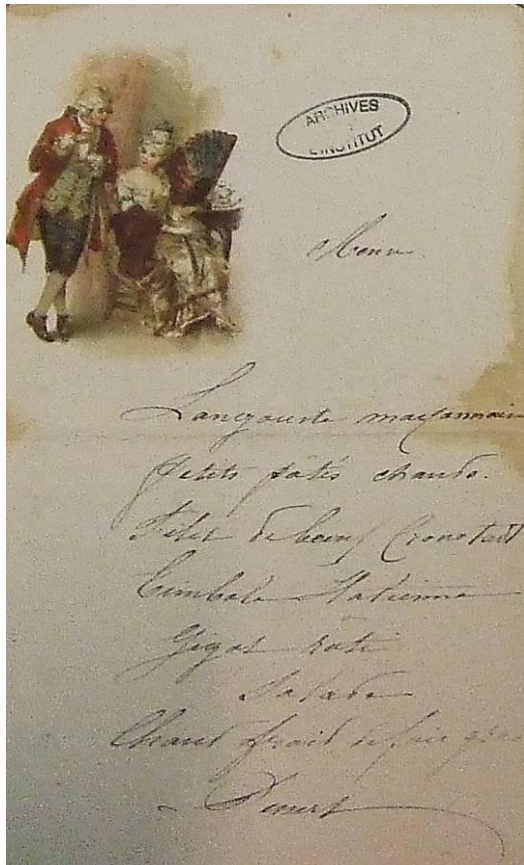 ARCHIVES
L'INSTITUT
Menu
Langouste mayonnaise
Petits pâtés chauds.
Filet de boeuf Cronstadt
Timbale Italienne
Gigot rôti
Salade
Chaud froid de foie gras
Dessert